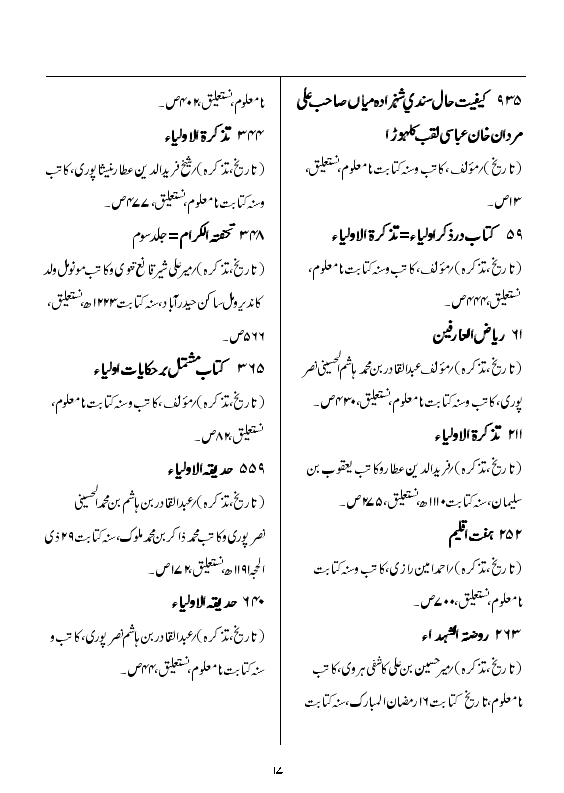 ۹۳۵ کیفیت حال سندی شہزادہ میاں صاحب علی
مردان خان عباسی لقب کلہوڑا
(تاریخ، تذکرہ)/مؤلف، کاتب وسنہ کتابت نامعلوم، نستعلیق،
۱۳ص۔
۵۹ کتاب در ذکر اولیاء = تذکرۃ الاولیاء
(تاریخ، تذکرہ)/مؤلف، کاتب وسنہ کتابت نامعلوم،
نستعلیق، ۴۴۴ص۔
۶۱ ریاض العارفین
(تاریخ، تذکرہ)/مؤلف عبدالقادر بن محمد ہاشم الحسینی نصر
پوری، کاتب وسنہ کتابت نامعلوم، نستعلیق، ۴۳۰ص۔
۲۱۱ تذکرۃ الاولیاء
(تاریخ، تذکرہ)/فریدالدین عطار وکاتب یعقوب بن
سلیمان، سنہ کتابت ۱۱۱۰ھ، نستعلیق، ۲۷۵ص۔
۲۵۲ ہفت اقلیم
(تاریخ، تذکرہ)/احمد امین رازی، کاتب وسنہ کتابت
نامعلوم، نستعلیق، ۷۰۰ص۔
۲۶۳ روضۃ الشہداء
(تاریخ، تذکرہ)/میر حسین بن علی کاشفی ہروی، کاتب
نامعلوم، تاریخ کتابت ۱۶ رمضان المبارک، سنہ کتابت
نامعلوم، نستعلیق، ۴۰۲ص۔
۳۴۴ تذکرۃ الاولیاء
(تاریخ، تذکرہ)/شیخ فریدالدین عطار نیشاپوری، کاتب
وسنہ کتابت نامعلوم، نستعلیق، ۴۷۷ص۔
۳۴۸ تحفتہ الکرام = جلد سوم
(تاریخ، تذکرہ)/میر علی شیر قانع تتوی وکاتب مونومل ولد
کاندیرومل ساکن حیدرآباد، سنہ کتابت ۱۲۲۳ھ، نستعلیق،
۵۶۶ص۔
۳۶۵ کتاب مشتمل بر حکایات اولیاء
(تاریخ، تذکرہ)/مؤلف، کاتب وسنہ کتابت نامعلوم،
نستعلیق، ۸۲ص۔
۵۵۹ حدیقۃ الاولیاء
(تاریخ، تذکرہ)/عبدالقادر بن ہاشم بن محمد الحسینی
نصر پوری وکاتب محمد ذاکر بن محمد ملوک، سنہ کتابت ۲۹ ذی
الحجہ ۱۱۹۱ھ، نستعلیق، ۱۷۲ص۔
۶۴۰ حدیقۃ الاولیاء
(تاریخ، تذکرہ)/عبدالقادر بن ہاشم نصر پوری، کاتب و
سنہ کتابت نامعلوم، نستعلیق، ۴۴ص۔
۱۷